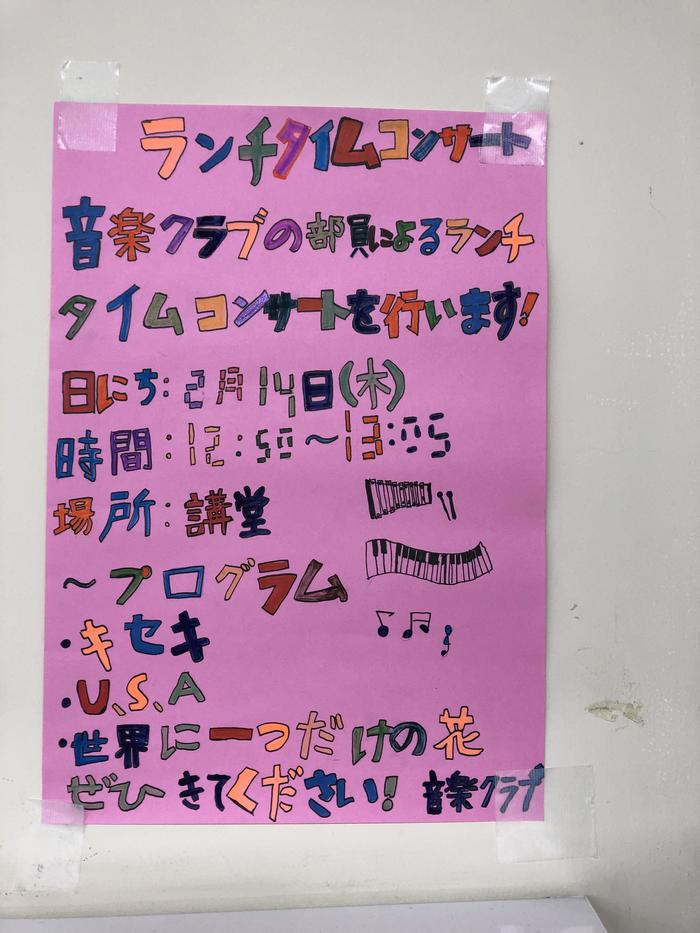 ランチタイムコンサート
音楽クラブの部員によるランチ
タイムコンサートを行います!
日にち:2月14日(木)
時間:12:50〜13:05
場所:講堂
〜プログラム
・キセキ
・U、S、A
・世界に一つだけの花
ぜひきてください! 音楽クラブ